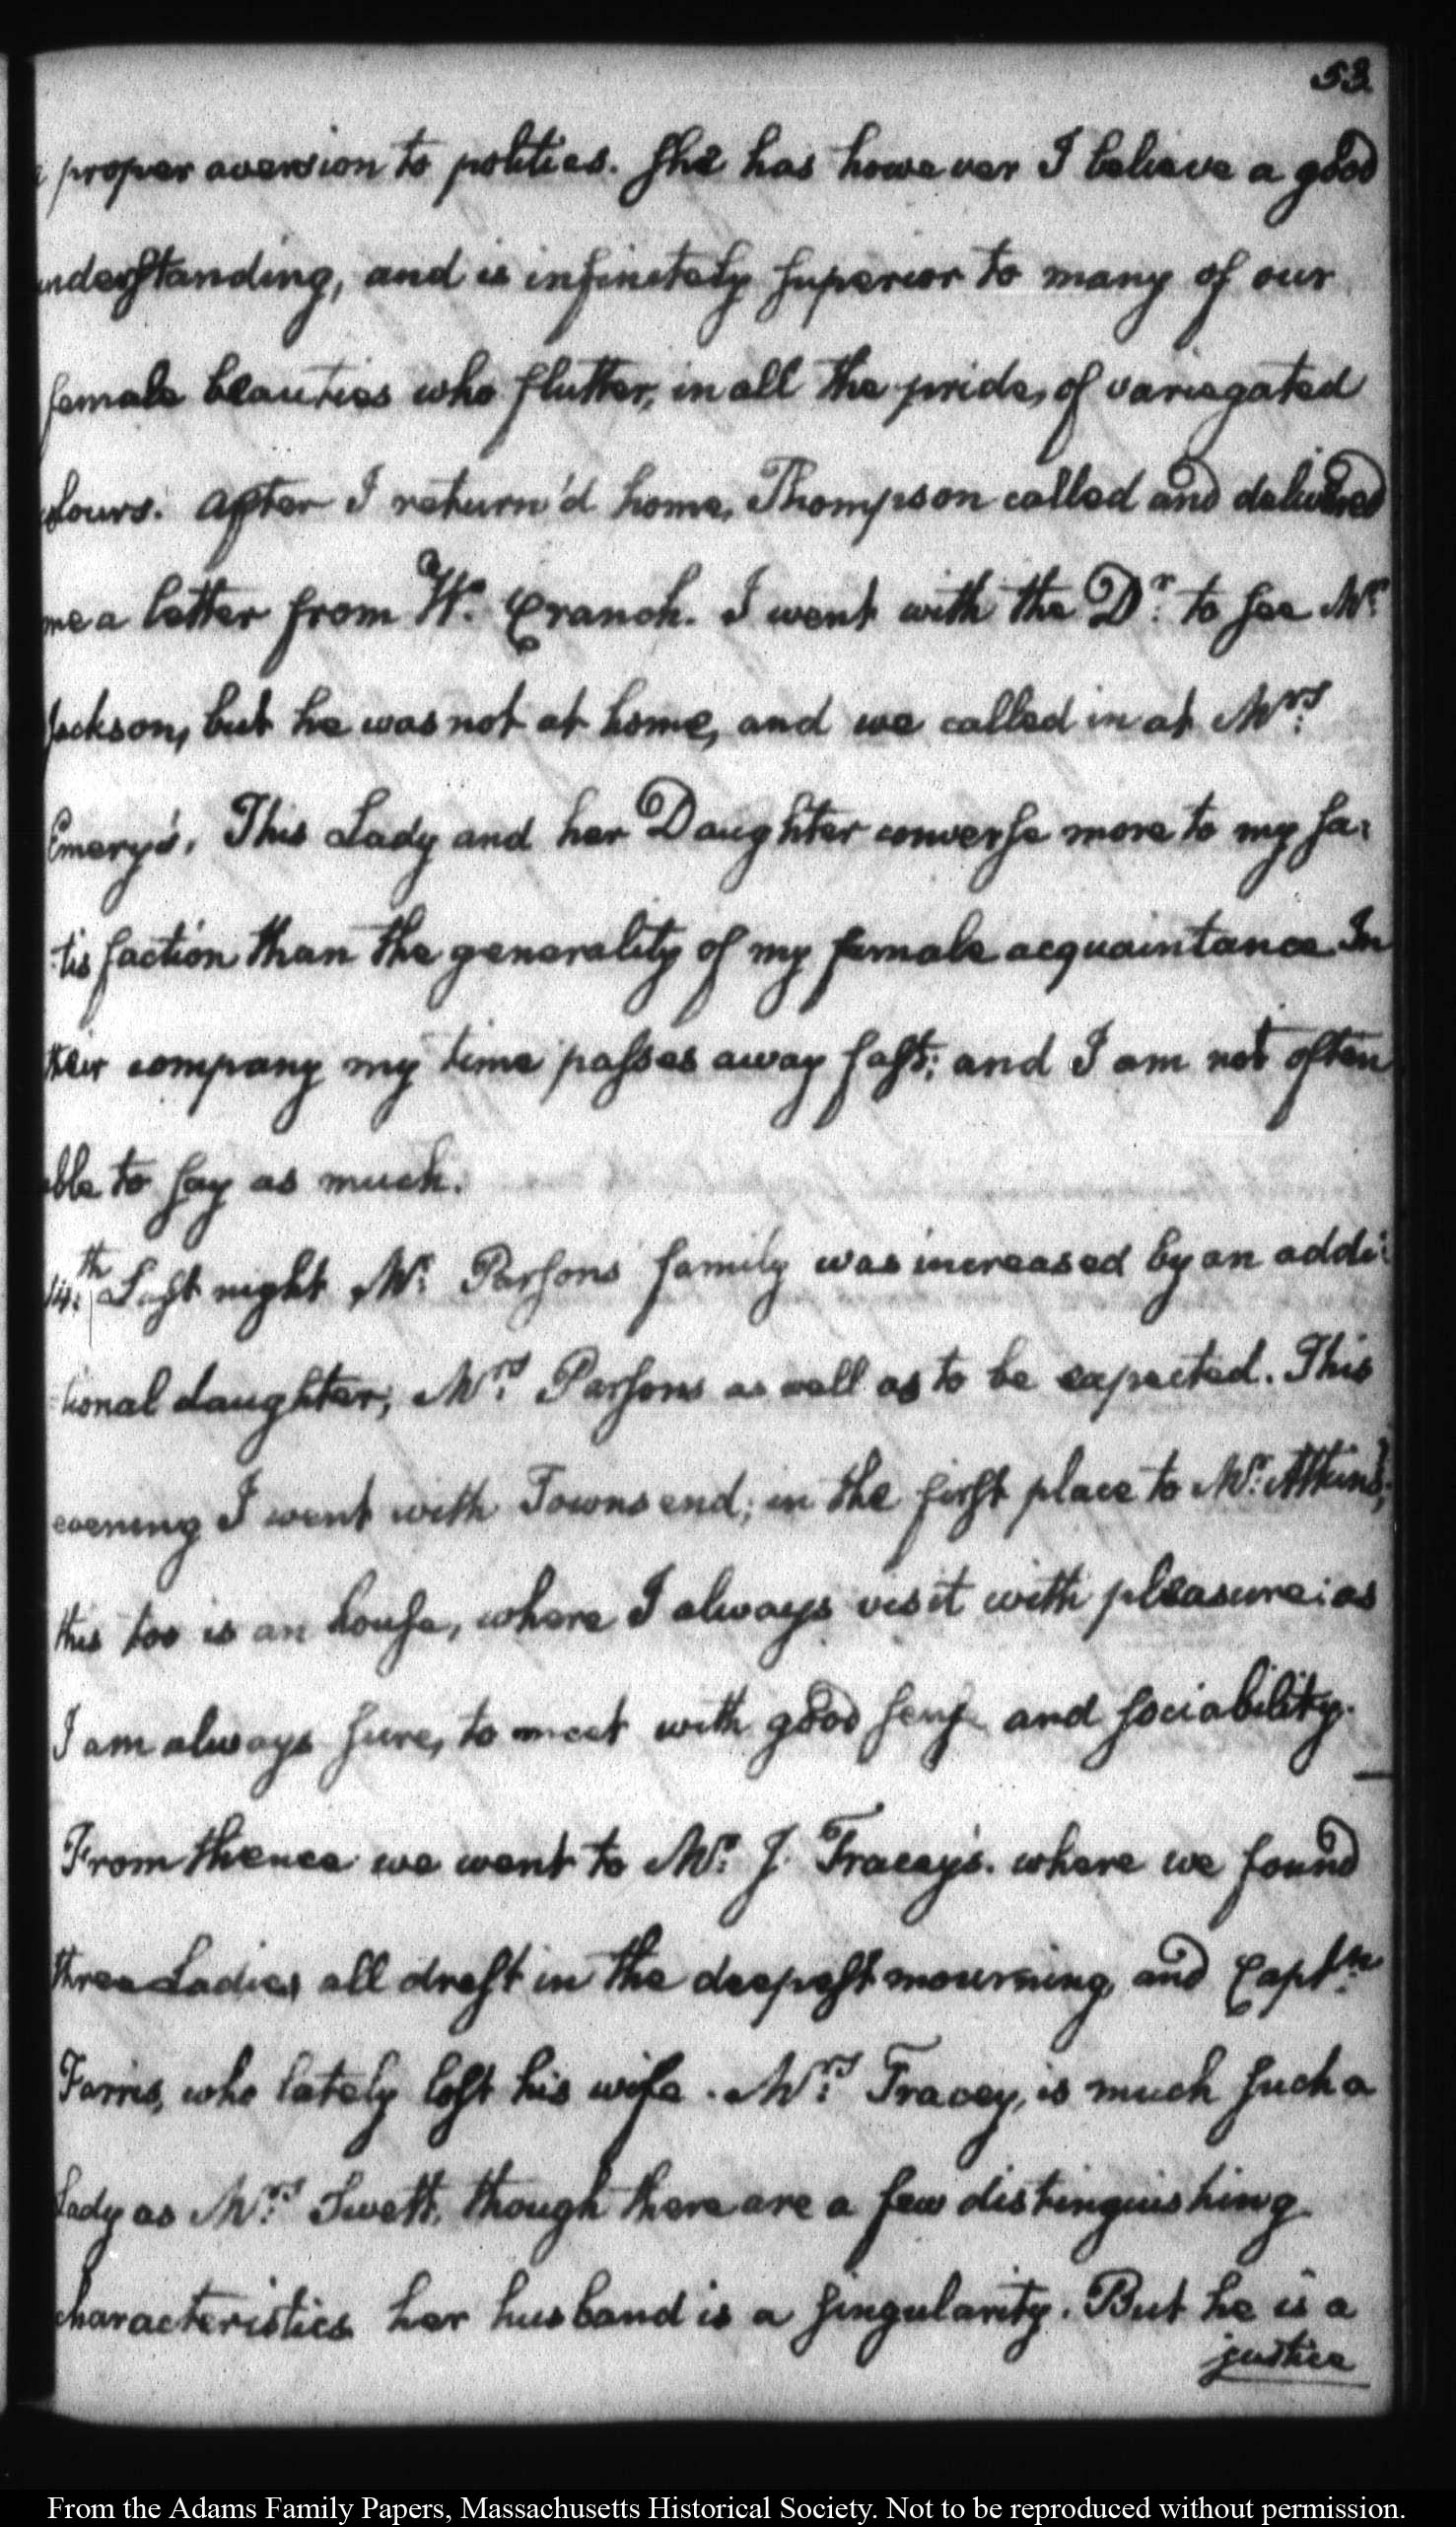 53.
a proper aversion to politics. She has however I believe a good
understanding, and is infinitely superior to many of our
female beauties who flutter, in all the pride, of variegated
colours. After I return'd home, Thompson called and delivered
me a letter from W. Cranch. I went with the Dr. to see Mr.
Jackson, but he was not at home, and we called in at Mrs.
Emery's. This Lady and her Daughter converse more to my sa-
-tisfaction than the generality of my female acquaintance In
their company my time passes away fast; and I am not often
able to say as much.
14th. Last night Mr. Parsons family was increased by an addi-
-tional daughter; Mrs. Parsons as well as to be expected. This
evening I went with Townsend; in the first place to Mr. Atkins's;
this too is an house, where I always visit with pleasure: as
I am always sure, to meet with good sense and sociability. —
From thence we went to Mr. J. Tracey's. where we found
three Ladies all drest in the deepest mourning, and Captn.
Farris, who lately lost his wife. Mrs. Tracey, is much such a
Lady as Mrs. Swett, though there are a few distinguishing
characteristics her husband is a singularity. But he is a
justice
From the Adams Family Papers, Massachusetts Historical Society. Not to be reproduced without permission.